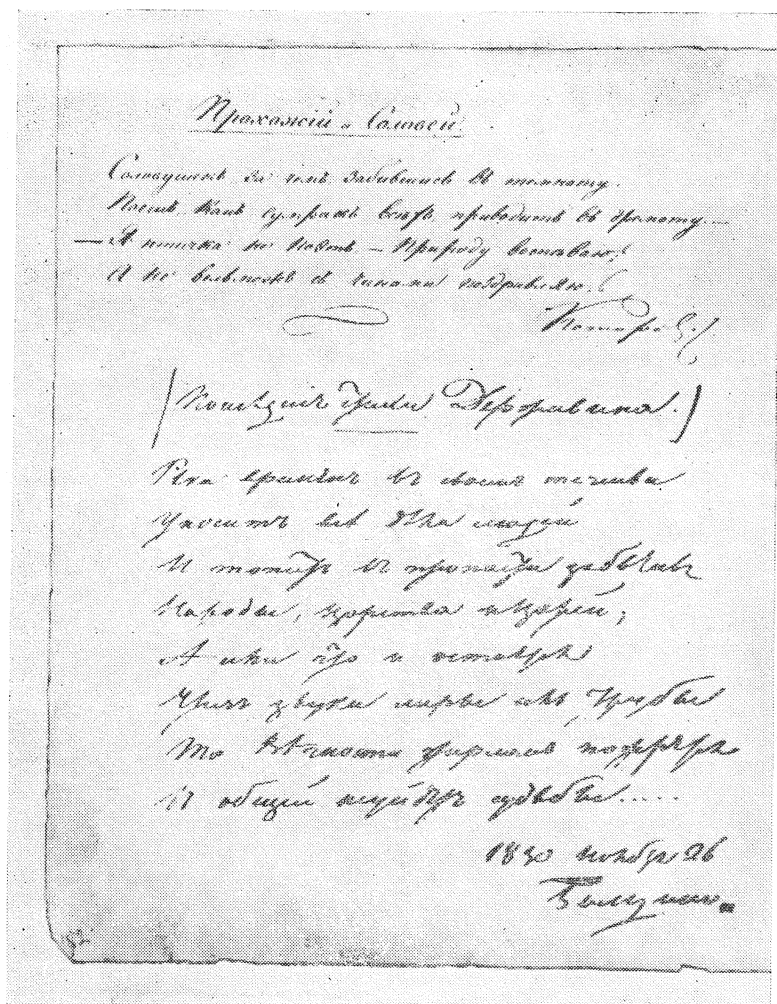 Прохожій и Соловей.
Соловушекъ за чемъ забившись въ темноту.
Поешь. Какъ сумракъ приводитъ въ дремоту —
— А птичка не — Природу воспеваю!
А не вельможъ съ чинами поздравляю!
(Послѣдніе Державина.)
Рѣка временъ въ своемъ теченьи
Уноситъ всѣ дѣла людей
И топитъ въ пропасти забвенья
Народы, царства и царей;
А если что и остается
Чрезъ звуки лиры иль трубы
То вѣчности жерломъ пожрется
И общей не уйдетъ судьбы.....
1830 Ноября 26